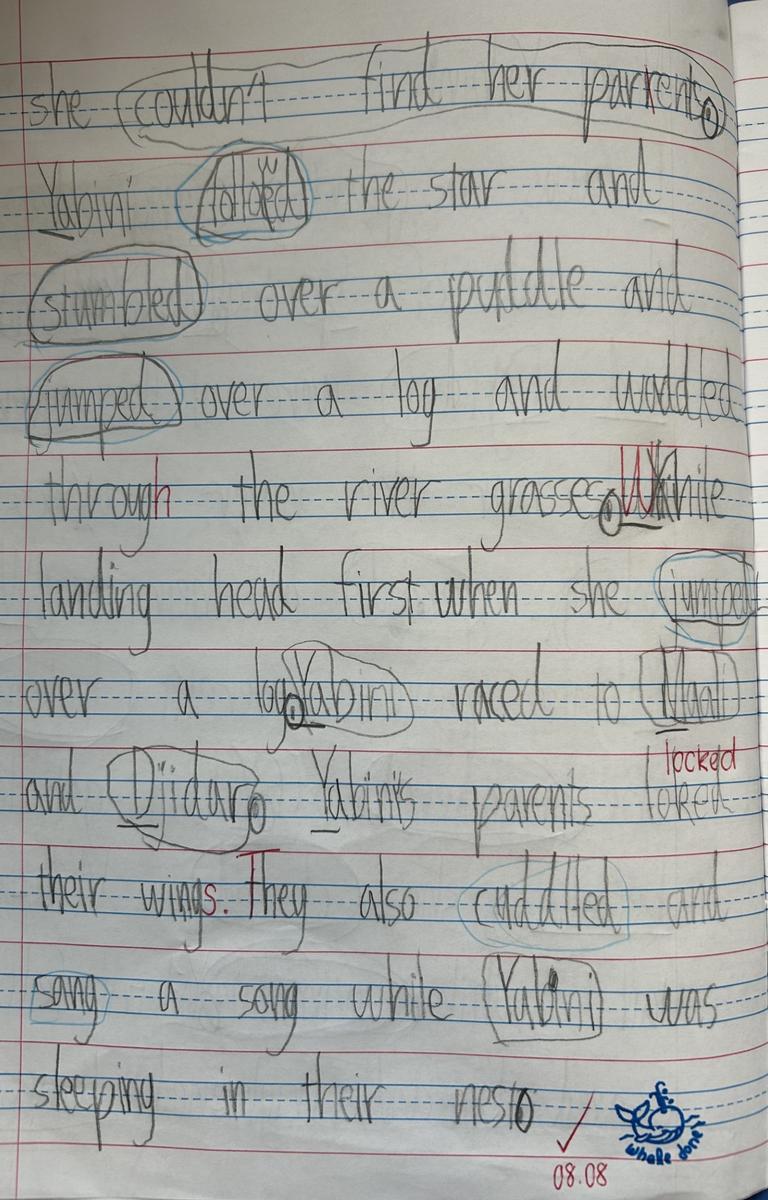 she couldn't find her parents.
Yabini followed the star and
stumbled over a puddle and
jumped over a log and waddled
through the river grasses. While
landing head first when she jumped
over a log. Yabini raced to Maali
locked
and Djidar. Yabini's parents loked
their wings. They also cuddlled and
sang a song while Yabini was
sleeping in their nest.
whale done
08.08